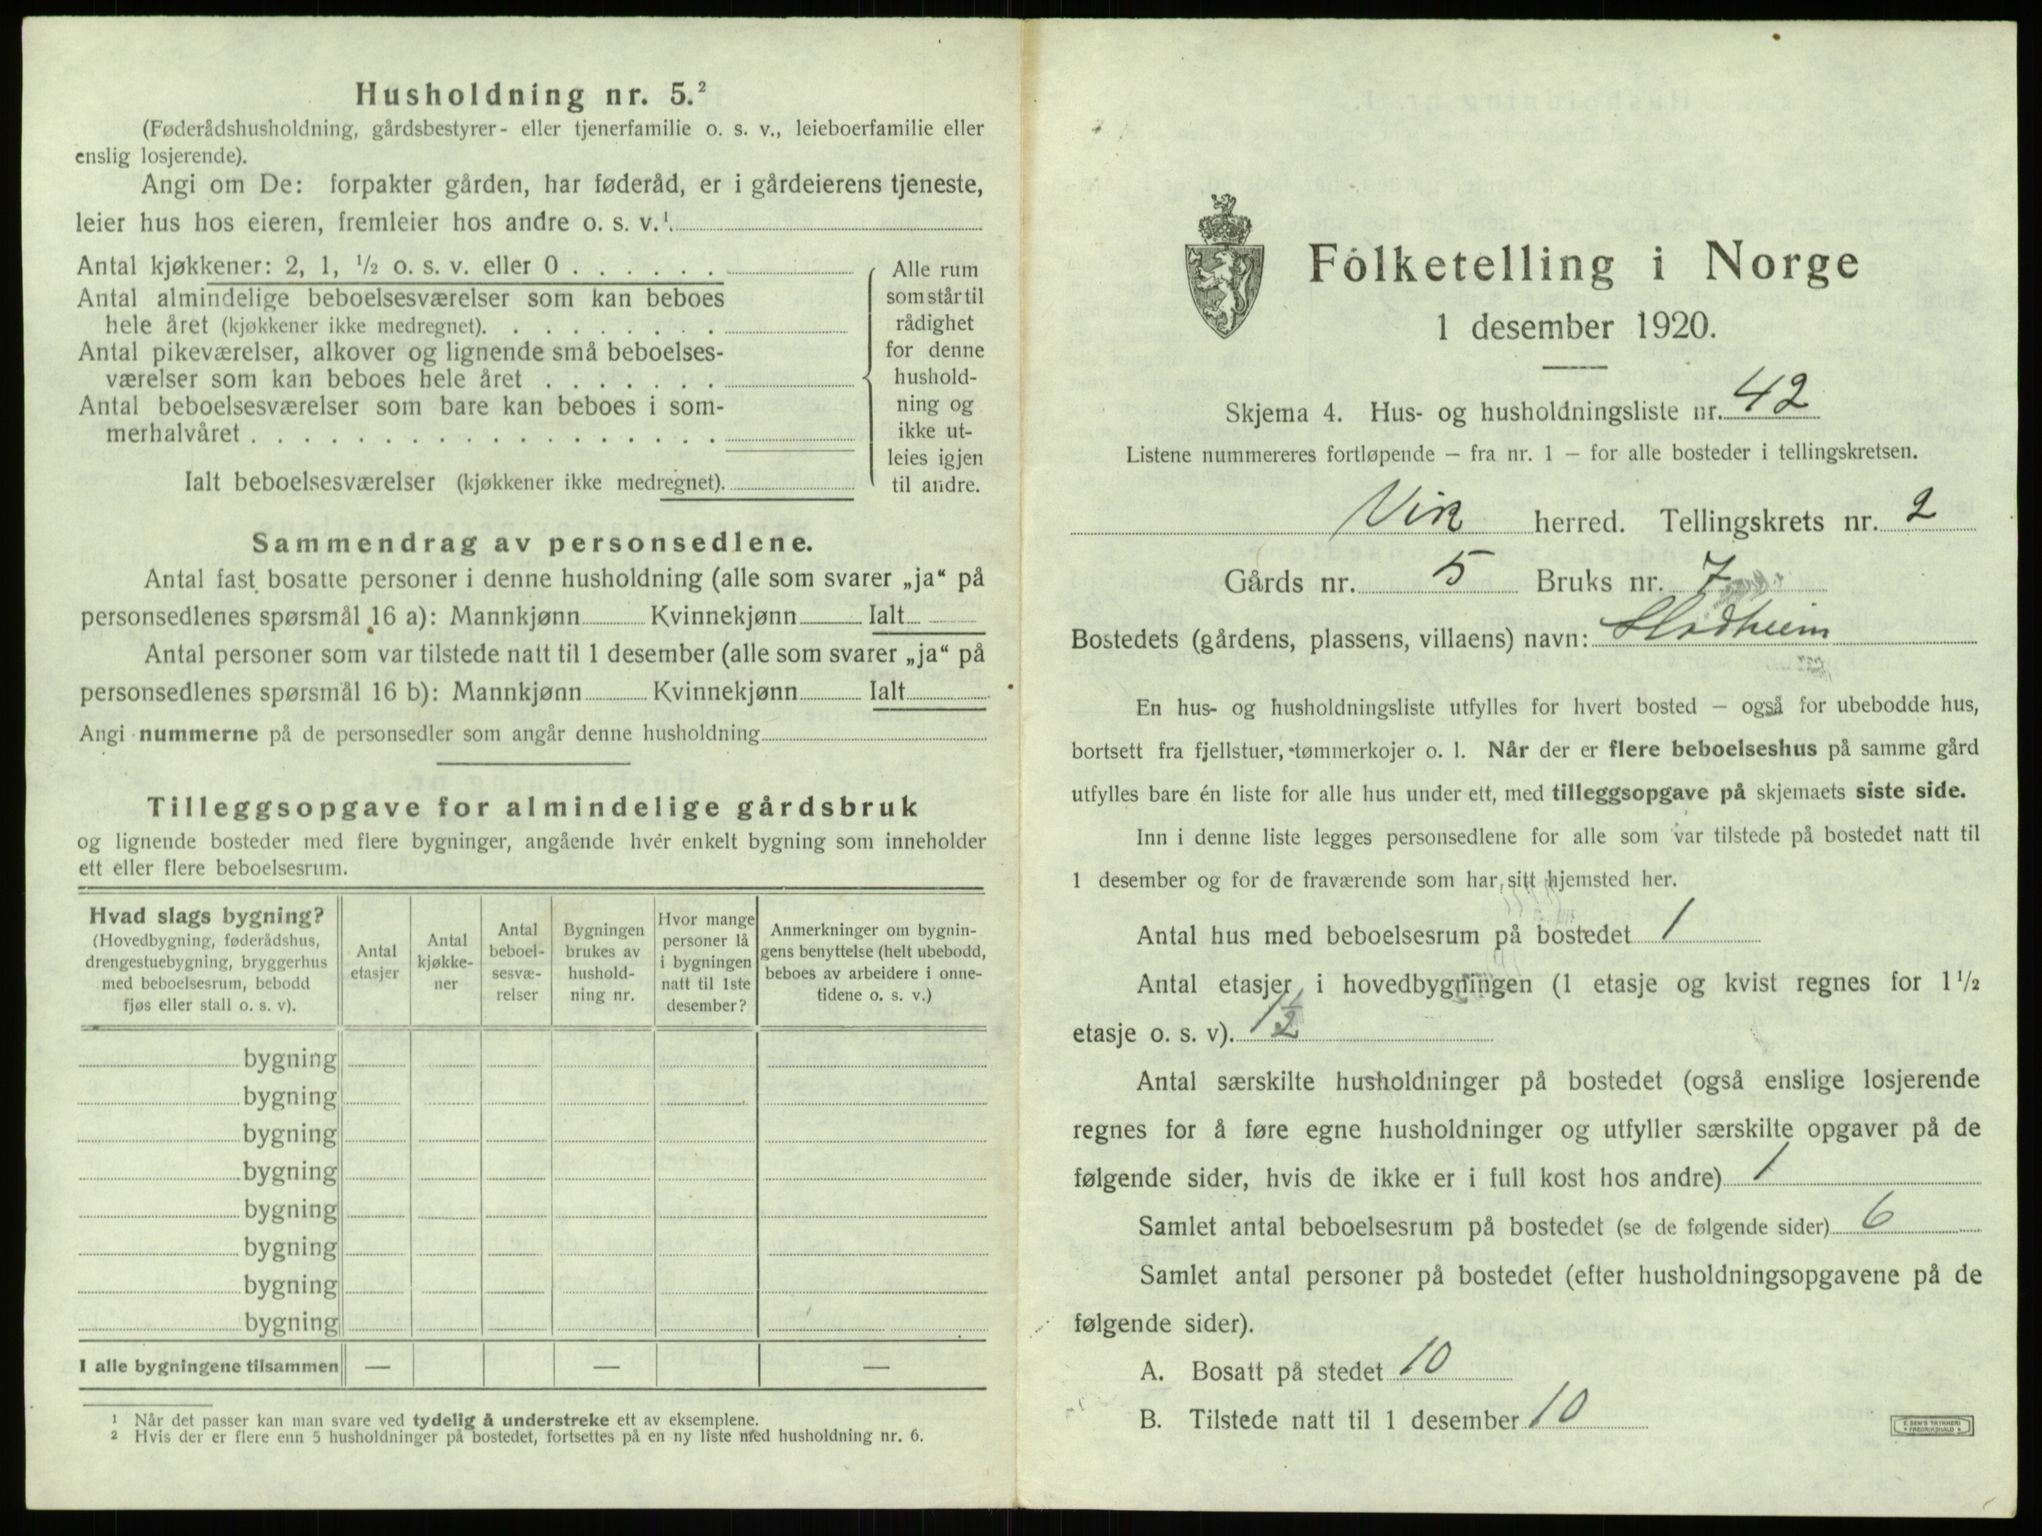 Husholdning nr. 5.²
(Føderådshusholdning, gårdsbestyrer- eller tjenerfamilie o. s. v., leieboerfamilie eller
enslig losjerende).
Angi om De: forpakter gården, har føderåd, er i gårdeierens tjeneste,
leier hus hos eieren, fremleier hos andre o. s. v.¹.
Antal kjøkkener: 2, 1, ½ o. s. v. eller 0 . . . . . .
Antal almindelige beboelsesværelser som kan beboes
hele året (kjøkkener ikke medregnet). . . . . . . . .
Antal pikeværelser, alkover og lignende små beboelses-
værelser som kan beboes hele året . . . . . . .
Antal beboelsesværelser som bare kan beboes i som-
merhalvåret . . . . . . . . . . . . . . . . . .
Alle rum
som står til
rådighet
for denne
hushold-
ning og
ikke ut-
leies igjen
til andre.
Ialt beboelsesværelser (kjøkkener ikke medregnet).
Sammendrag av personsedlene.
Antal fast bosatte personer i denne husholdning (alle som svarer „ja“ på
personsedlenes spørsmål 16 a): Mannkjønn Kvinnekjønn Ialt
Antal personer som var tilstede natt til 1 desember (alle som svarer „ja“ på
personsedlenes spørsmål 16 b): Mannkjønn Kvinnekjønn Ialt
Angi nummerne på de personsedler som angår denne husholdning
Tilleggsopgave for almindelige gårdsbruk
og lignende bosteder med flere bygninger, angående hvér enkelt bygning som inneholder
ett eller flere beboelsesrum.
Hvad slags bygning?
(Hovedbygning, føderådshus,
drengestuebygning, bryggerhus
med beboelsesrum, bebodd
fjøs eller stall o. s. v).
Antal
etasjer
Antal
kjøkke-
ner
Antal
beboel-
sesvæ-
relser
Bygningen
brukes av
hushold-
ning nr.
Hvor mange
personer lå
i bygningen
natt til 1ste
desember?
Anmerkninger om bygnin-
gens benyttelse (helt ubebodd,
beboes av arbeidere i onne-
tidene o. s. v.)
bygning
bygning
bygning
bygning
bygning
bygning
bygning
bygning
I alle bygningene tilsammen — — —
¹ Når det passer kan man svare ved tydelig å understreke ett av eksemplene.
² Hvis der er flere enn 5 husholdninger på bostedet, fortsettes på en ny liste med husholdning nr. 6.
Folketelling i Norge
1 desember 1920.
Skjema 4. Hus- og husholdningsliste nr. 42
Listene nummereres fortløpende — fra nr. 1 — for alle bosteder i tellingskretsen.
Vik herred. Tellingskrets nr. 2
Gårds nr. 5 Bruks nr. 7
Bostedets (gårdens, plassens, villaens) navn:
En hus- og husholdningsliste utfylles for hvert bosted — også for ubebodde hus,
bortsett fra fjellstuer, tømmerkojer o. l. Når der er flere beboelseshus på samme gård
utfylles bare én liste for alle hus under ett, med tilleggsopgave på skjemaets siste side.
Inn i denne liste legges personsedlene for alle som var tilstede på bostedet natt til
1 desember og for de fraværende som har sitt hjemsted her.
Antal hus med beboelsesrum på bostedet 1
Antal etasjer i hovedbygningen (1 etasje og kvist regnes for 1 ½
etasje o. s. v). 1½
Antal særskilte husholdninger på bostedet (også enslige losjerende
regnes for å føre egne husholdninger og utfyller særskilte opgaver på de
følgende sider, hvis de ikke er i full kost hos andre) 1
Samlet antal beboelsesrum på bostedet (se de følgende sider) 6
Samlet antal personer på bostedet (efter husholdningsopgavene på de
følgende sider).
A. Bosatt på stedet 10
B. Tilstede natt til 1 desember 10